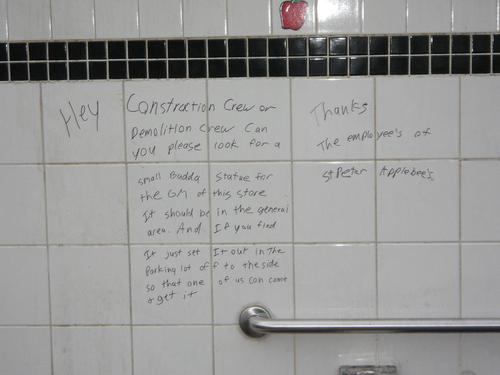 Hey
Construction Crew or
Demolition Crew Can
you please look for a
small Budda Statue for
the GM of this store
It should be in the general
area. And If you find
It just set It out in The
Parking lot off to the side
so that one of us can come
& get it
Thanks
The employee's of
St Peter Applebee's